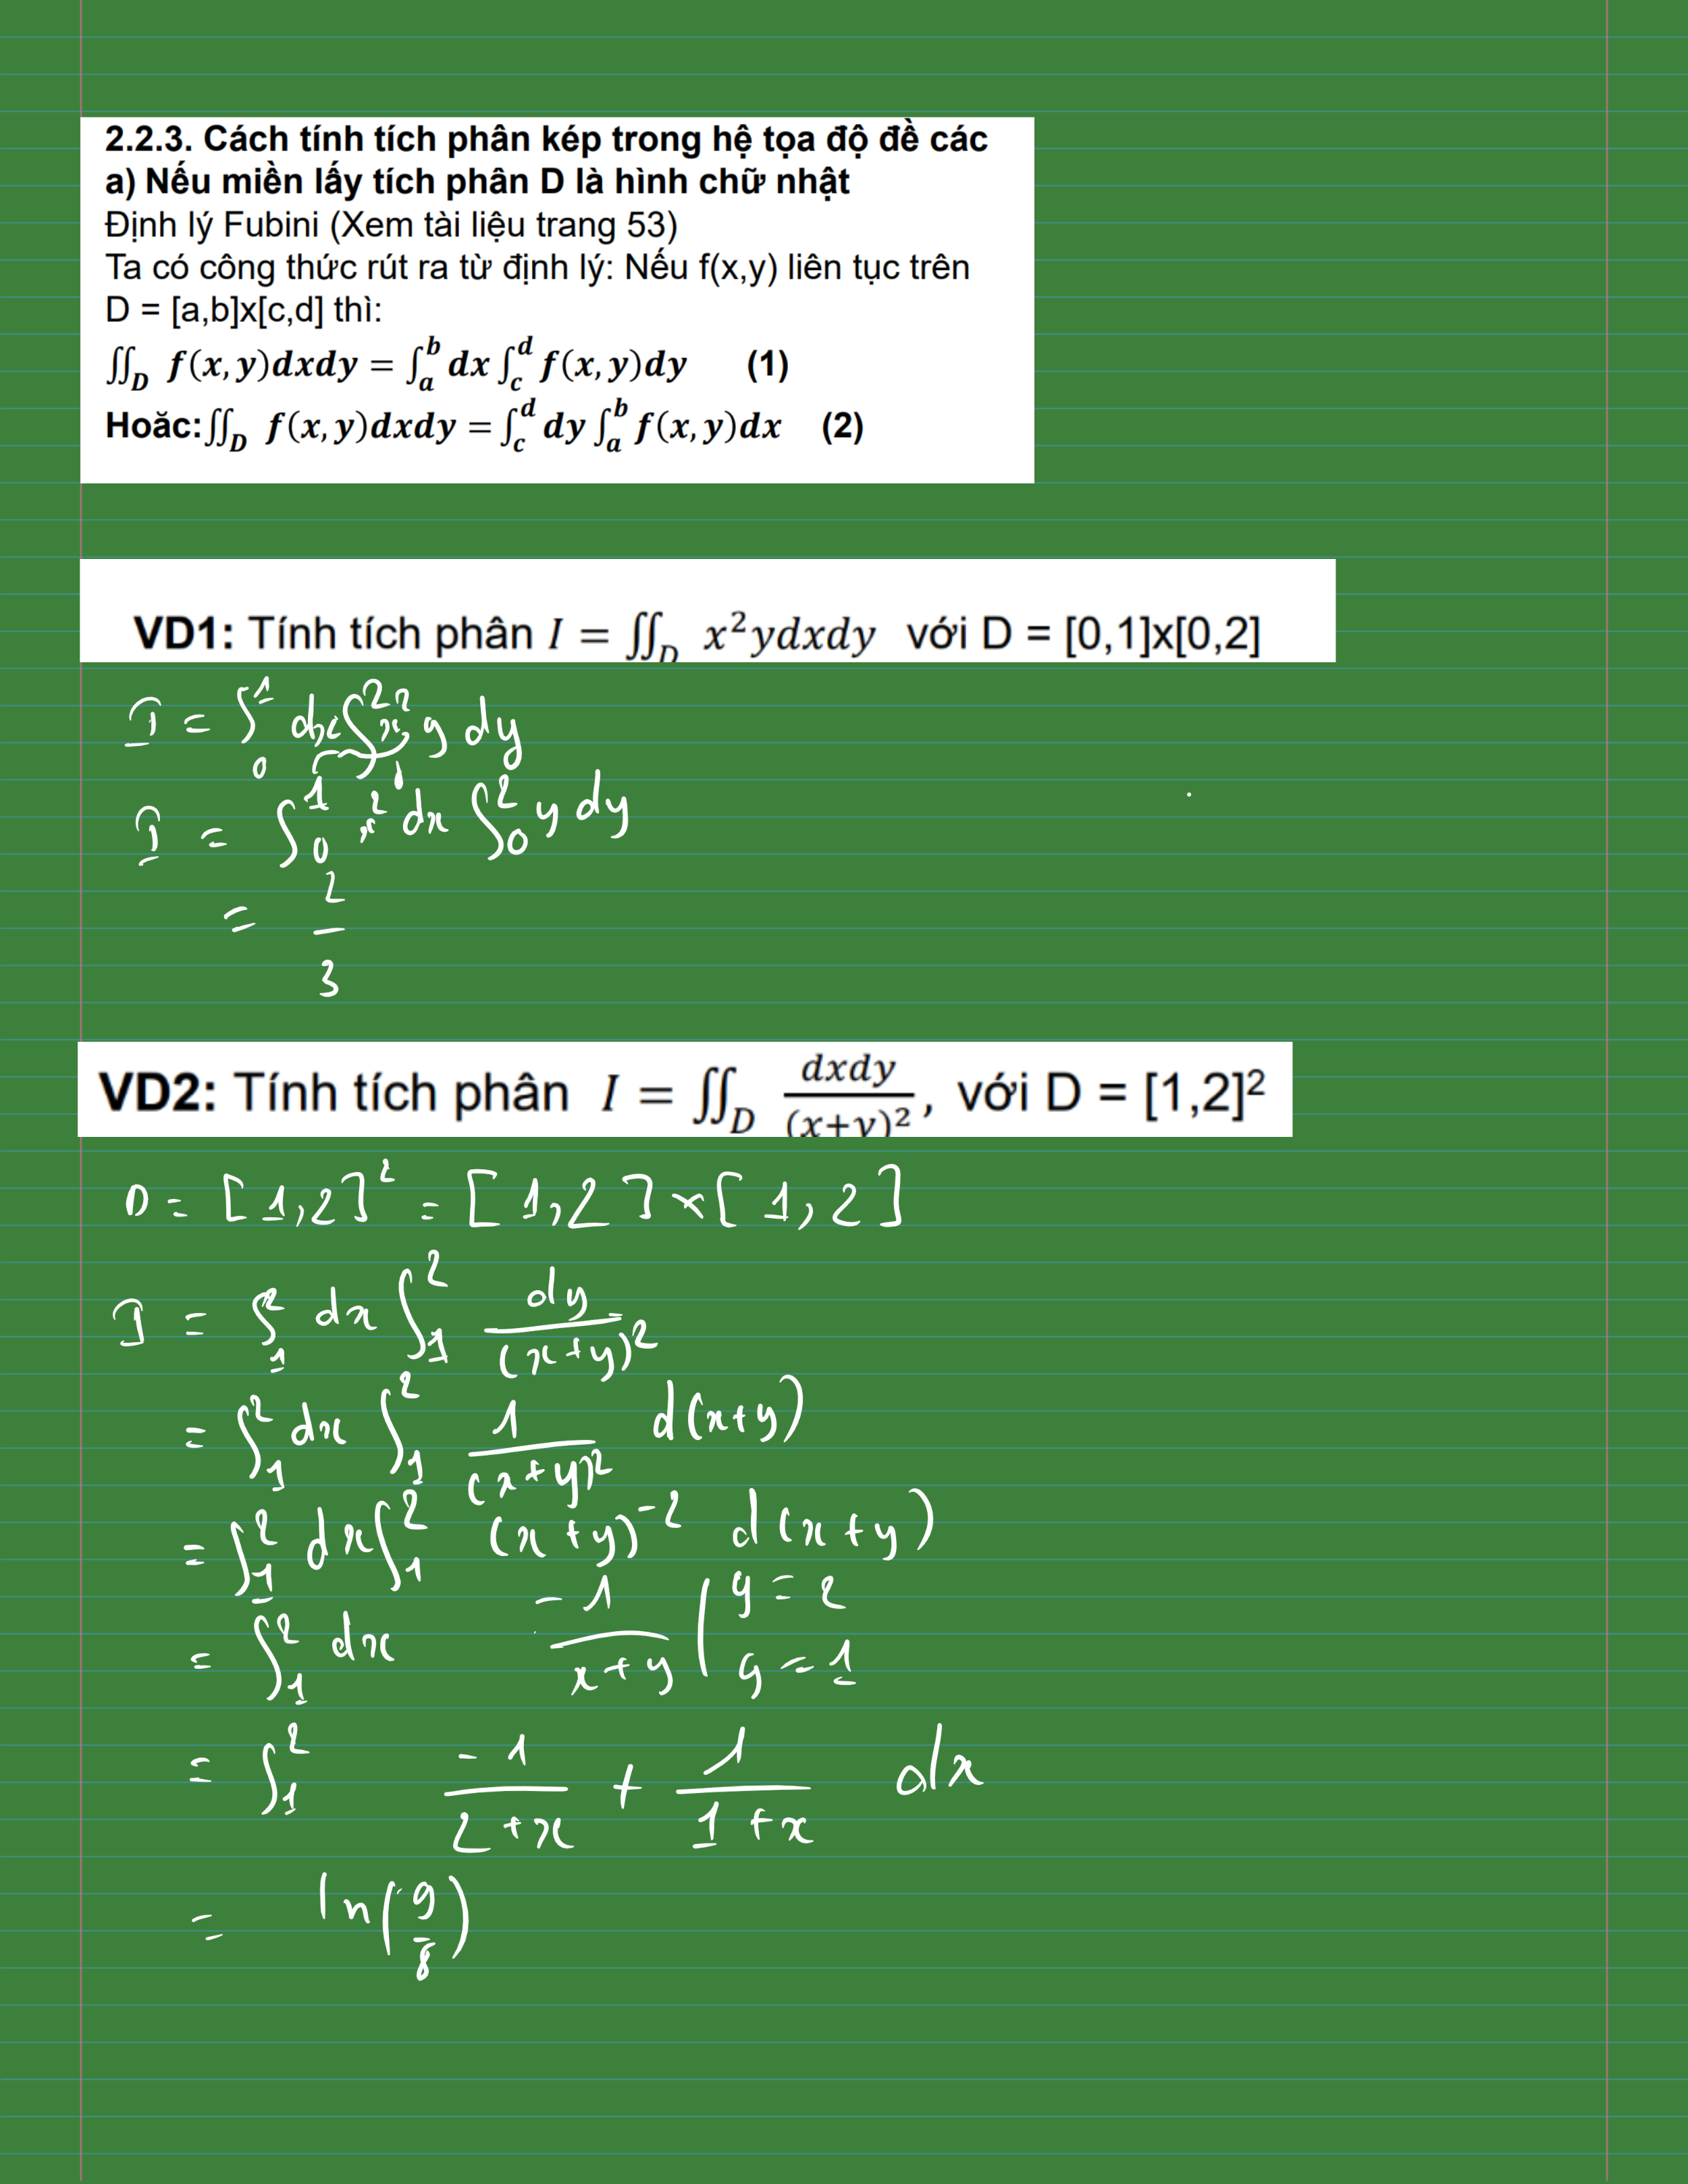 2.2.3. Cách tính tích phân kép trong hệ tọa độ đề các
a) Nếu miền lấy tích phân D là hình chữ nhật
Định lý Fubini (Xem tài liệu trang 53)
Ta có công thức rút ra từ định lý: Nếu f(x,y) liên tục trên
D = [a,b]x[c,d] thì:
∬_D f(x,y)dxdy = ∫_a^b dx ∫_c^d f(x,y)dy (1)
Hoăc:∬_D f(x,y)dxdy = ∫_c^d dy ∫_a^b f(x,y)dx (2)
VD1: Tính tích phân I = ∬_D x²ydxdy với D = [0,1]x[0,2]
I = ∫_0^1 dx ∫_0^2 x² y dy
I = ∫_0^1 x² dx ∫_0^2 y dy
= 2/3
VD2: Tính tích phân I = ∬_D dxdy/(x+y)², với D = [1,2]²
D = [1,2]² = [1,2]×[1,2]
I = ∫_1^2 dx ∫_1^2 dy/(x+y)²
= ∫_1^2 dx ∫_1^2 1/(x+y)² d(x+y)
= ∫_1^2 dx ∫_1^2 (x+y)^-2 d(x+y)
= ∫_1^2 dx -1/(x+y) | y=2 y=1
= ∫_1^2 -1/(2+x) + 1/(1+x) dx
= ln(9/8)